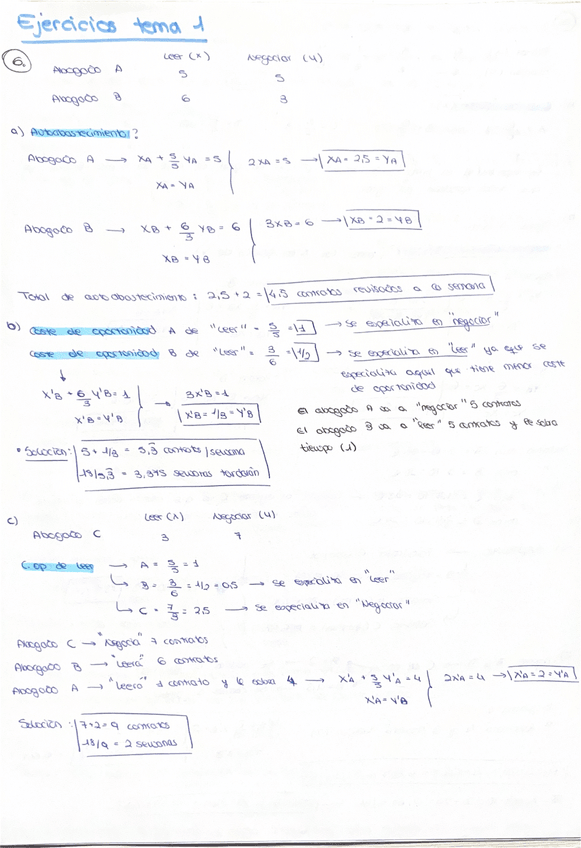 Ejercicios tema 1
6. Leer (x) Negociar (y)
Abogado A 5 5
Abogado B 6 3
a) Autoabastecimiento?
Abogado A → XA + 5/5 YA = 5 } 2XA = 5 → XA = 2,5 = YA
XA = YA
Abogado B → XB + 6/3 YB = 6 } 3XB = 6 → XB = 2 = YB
XB = YB
Total de autoabastecimiento: 2,5 + 2 = 4,5 contratos revisados a la semana
b) Coste de oportunidad A de "leer" = 5/5 = 1 → Se especializa en "negociar"
Coste de oportunidad B de "leer" = 3/6 = 1/2 → Se especializa en "leer" ya que se
especializa aquel que tiene menor coste
de oportunidad
X'B + 6/3 Y'B = 1 } → 3X'B = 1
X'B = Y'B X'B = 1/3 = Y'B
El abogado A va a "negociar" 5 contratos
El abogado B va a "leer" 5 contratos y le sobra
tiempo (1)
• Solución: 5 + 1/3 = 5,3 contratos/semana
18/5,3 = 3,375 semanas tardarán
c) Leer (x) Negociar (y)
Abogado C 3 7
C.op de leer → A = 5/5 = 1
↳ B = 3/6 = 1/2 = 0,5 → Se especializa en "leer"
↳ C = 7/3 = 2,5 → Se especializa en "Negociar"
Abogado C → "Negocia" 7 contratos
Abogado B → "Leerá" 6 contratos
Abogado A → "Leerá" 1 contrato y le sobra 4 → X'A + 5/5 Y'A = 4 } 2X'A = 4 → X'A = 2 = Y'A
X'A = Y'B
Solución: 7+2 = 9 contratos
18/9 = 2 semanas